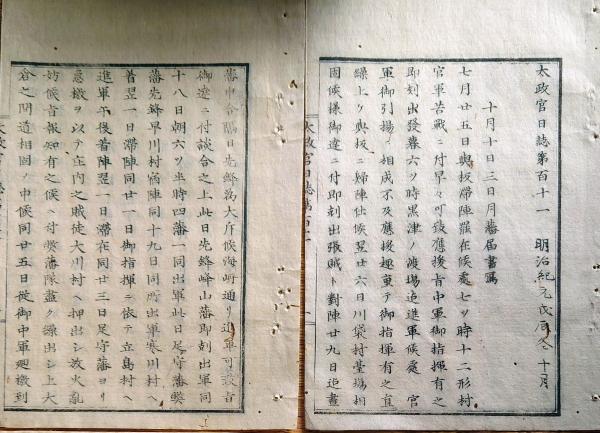 太政官日誌第百十一 明治紀元戊辰冬十月
十月十日三日月藩届書写
七月廿五日與板滞陣罷在候處七ツ時十二形村
官軍苦戦ニ付早々可致應援旨中軍御指揮有之
即刻出發暮六ツ時黒津ノ渡場迄進軍候處官
軍御引揚ニ相成不及應援趣更ニ御指揮有之直
繰上ケ與板ニ帰陣仕候翌廿六日川袋村臺場相
固候様御達ニ付即刻出張賊ト對陣廿九日迄晝
藩申合隔日先鋒為大庄候海岬通リ進軍可致旨
御達ニ付談合之上此日先鋒峰山藩即刻出軍同
十八日朝六ツ半時四藩一同出軍此日足守藩
藩先鋒早川村宿陣同十九日同所出軍寒川村ヘ
着翌一日滞陣同廿一日御指揮ニ依テ立島村ヘ
進軍午後着陣翌一日滞在同廿三日足守藩ヨリ
急檄ヲ以テ庄内之賊徒大川村ヘ押出シ放火乱
妨候旨報知有之候ヘ付弊藩隊盡ク繰出シ上大
倉之間道相固メ申候同廿五日従御中軍廻檄到